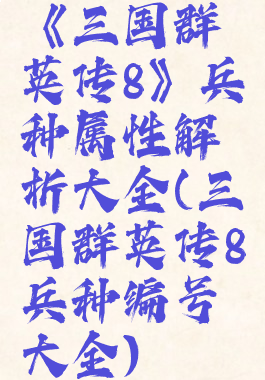 《三国群
英传8》兵
种属性解
析大全(三
国群英传8
兵种编号
大全)